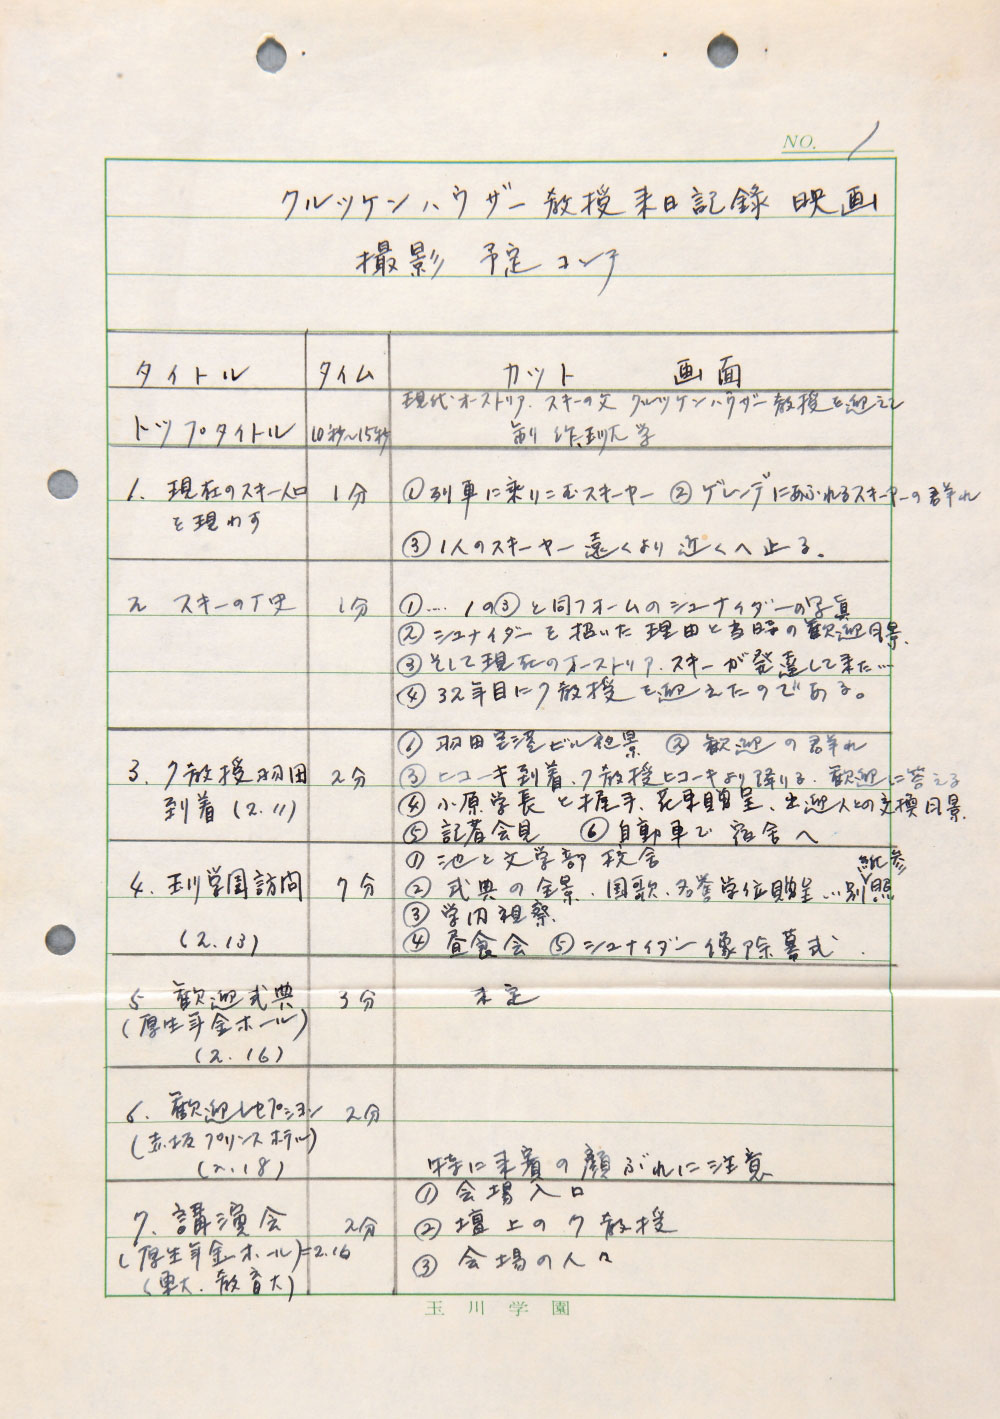 NO. 1
クルッケンハウザー教授来日記録映画
撮影予定コンテ
タイトル タイム カット 画面
現代オーストリア.スキーの父 クルッケンハウザー教授を迎えて
トップタイトル 10秒〜15秒 制作玉川大学
1. 現在のスキー人口 1分 ①列車に乗りこむスキーヤー ②ゲレンデにあふれるスキーヤーの群れ
を現わす
③1人のスキーヤー遠くより近くへ止る。
2 スキーの丁史 1分 ①…. 1の③と同フォームのシュナイダーの写真
②シュナイダーを招いた理由と当時の歓迎風景.
③そして現在のオーストリア.スキーが発達して来た…
④32年目にク教授を迎えたのである。
①羽田空港ビル全景 ②歓迎の群れ
3. ク教授羽田 2分 ③ヒコーキ到着.ク教授ヒコーキより降りる.歓迎に答える
到着(2.11) ④小原学長と握手、花束贈呈、出迎人との交換風景.
⑤記者会見 ⑥自動車で宿舎へ
①池と文学部校舎 紙参
4. 玉川学園訪問 7分 ②式典の全景.国歌.名誉学位贈呈…別照
③学内視察.
(2.13) ④昼食会 ⑤シュナイダー像除幕式.
5 歓迎式典 3分 未定
(厚生年金ホール)
(2.16)
6. 歓迎レセプション 2分
(赤坂プリンスホテル)
(2.18) 特に来賓の顔ぶれに注意
①会場入口
7. 講演会 2分 ②壇上のク教授
(厚生年金ホール)=2.16 ③会場の人々
(東大.教育大)
玉川学園